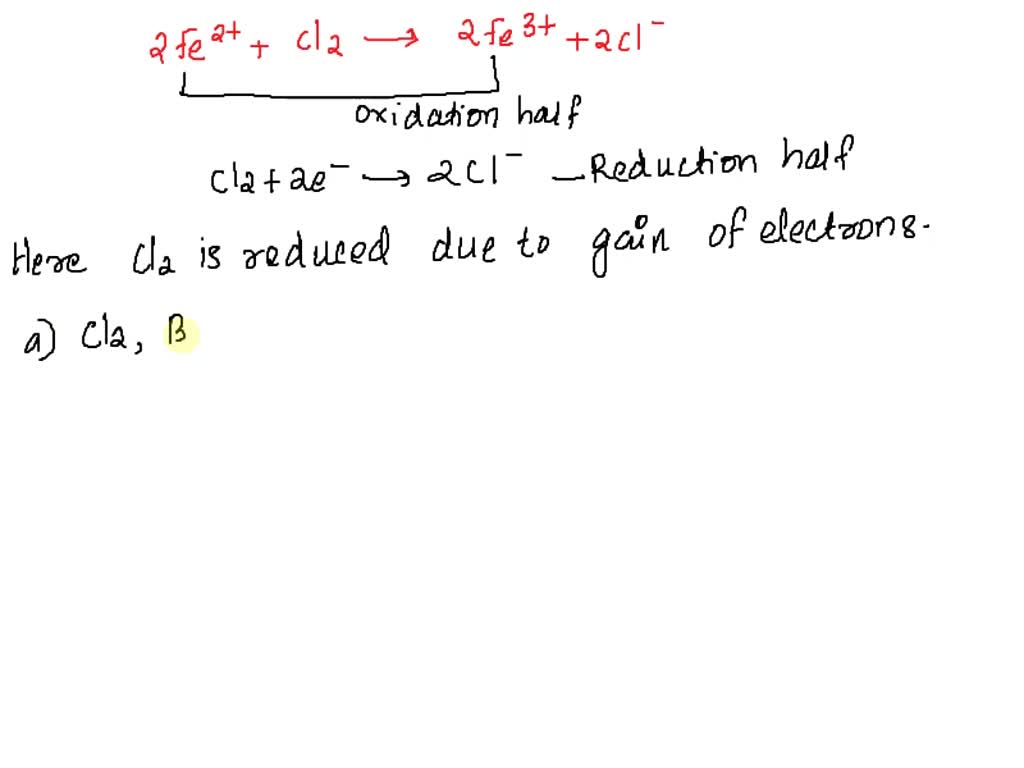 2Fe²⁺ + Cl₂ → 2Fe³⁺ + 2Cl⁻
oxidation half
Cl₂ + 2e⁻ → 2Cl⁻ – Reduction half
Here Cl₂ is reduced due to gain of electrons.
a) Cl₂, B